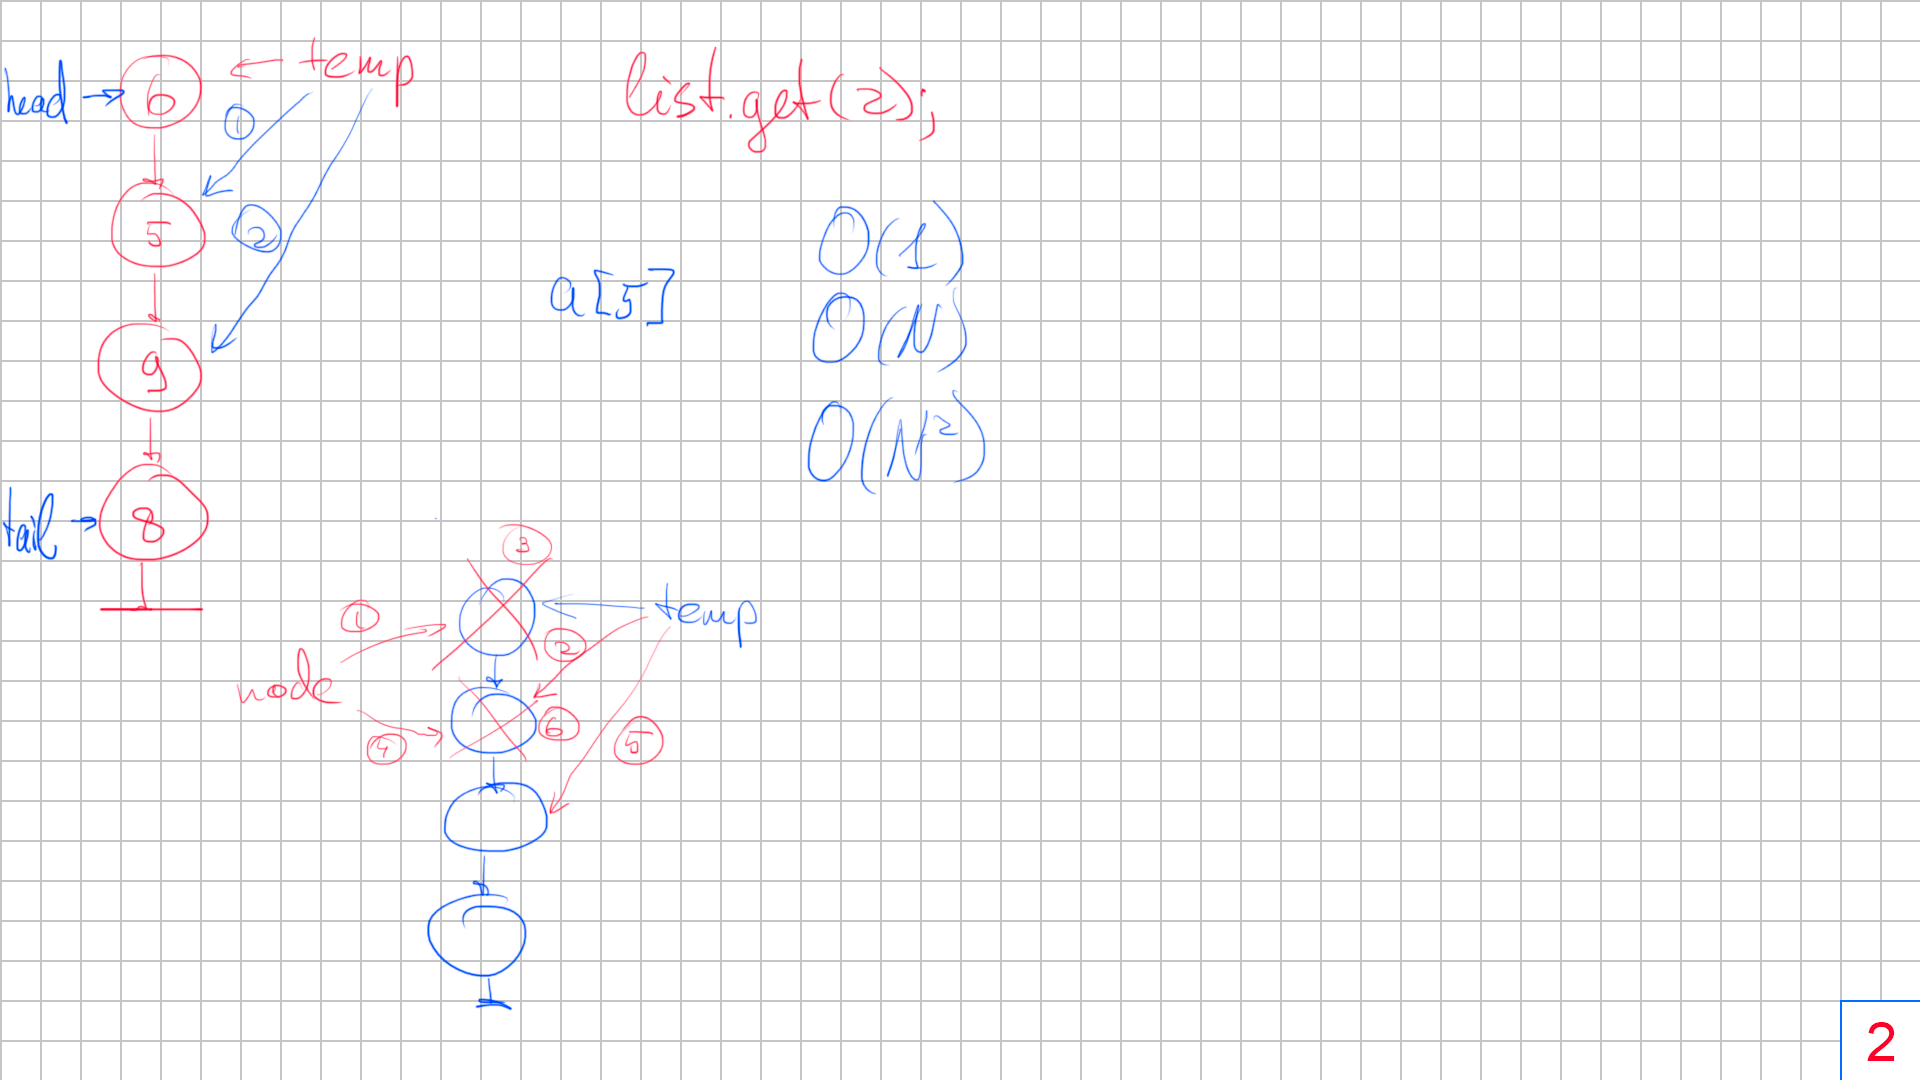 head → 6 ← temp
①
5
②
9
tail → 8
list.get(2);
a[5]
O(1)
O(N)
O(N²)
③
①
temp
②
node
④
⑥
⑤
2